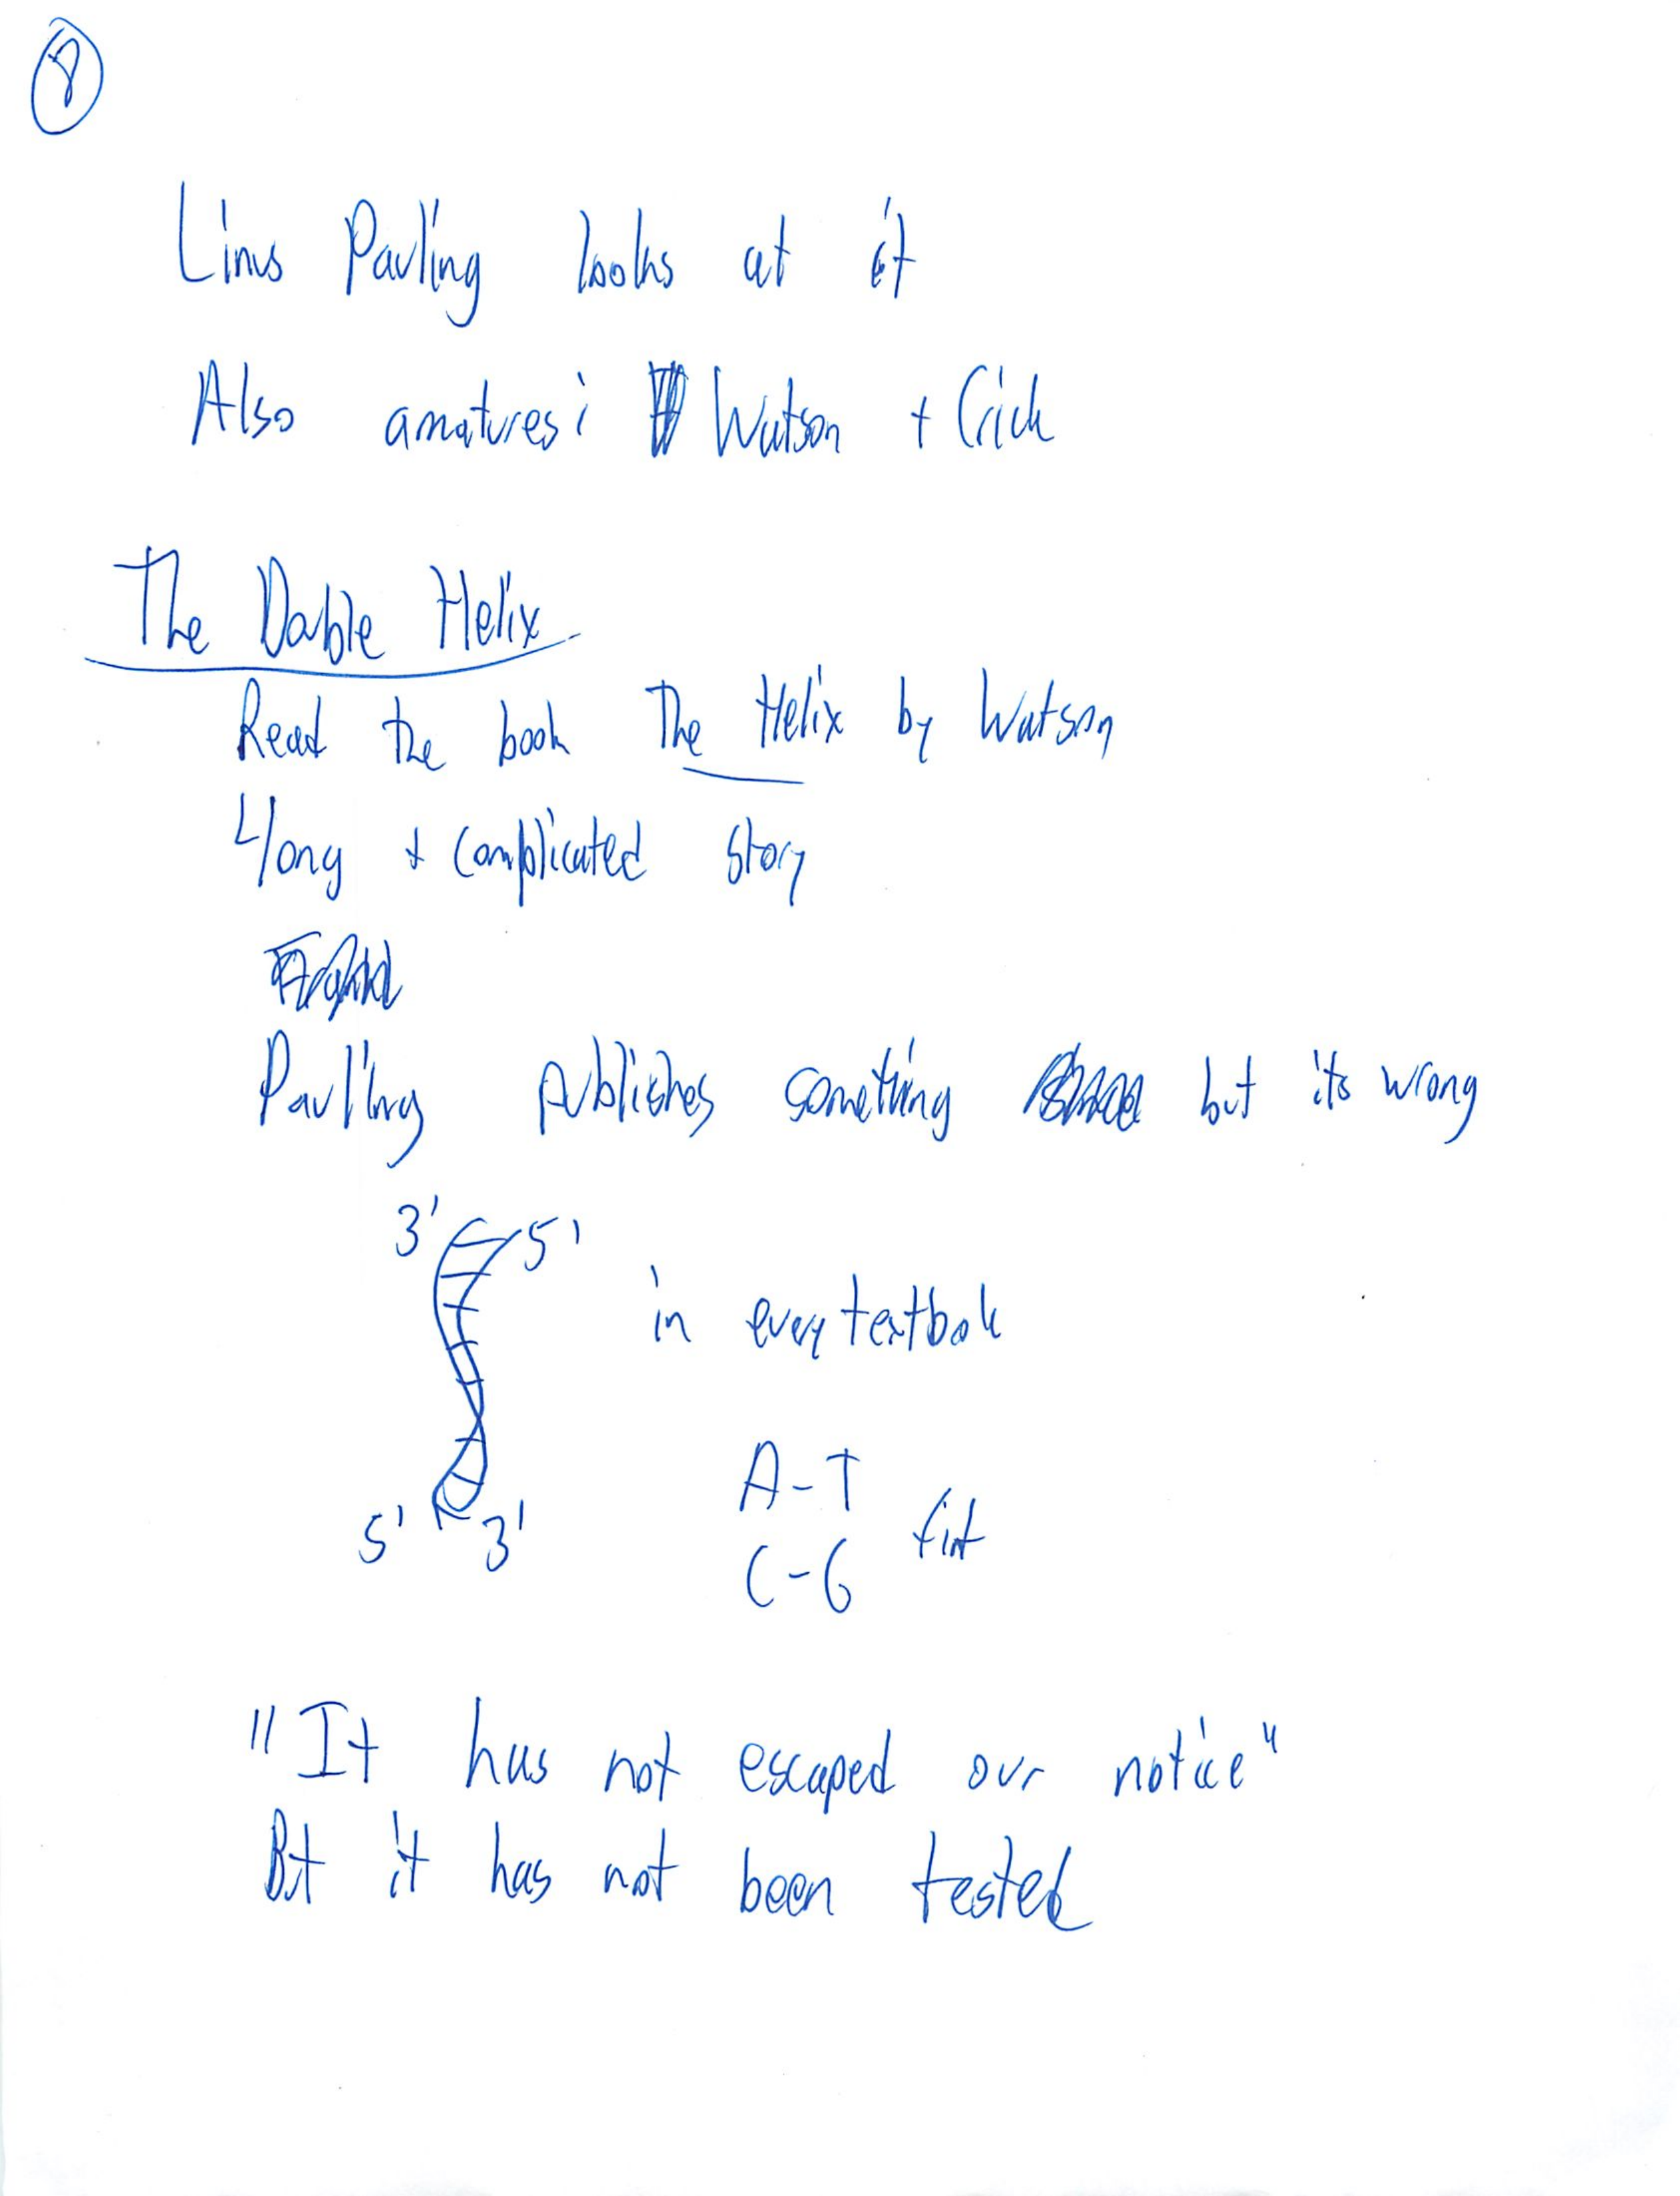 8
Linus Pauling looks at it
Also amatures: Watson + Crick
The Double Helix
Read the book The Helix by Watson
long + complicated story
Pauling publishes something but its wrong
3' 5'
in every textbook
A-T
C-G fit
5' 3'
"It has not escaped our notice"
But it has not been tested